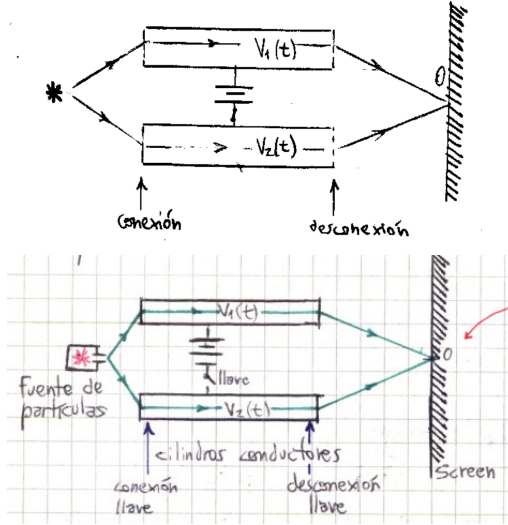 V₁(t)
O
V₂(t)
conexión
desconexión
V₁(t)
O
llave
Fuente de
partículas
V₂(t)
cilindros conductores
conexión
llave
desconexión
llave
Screen